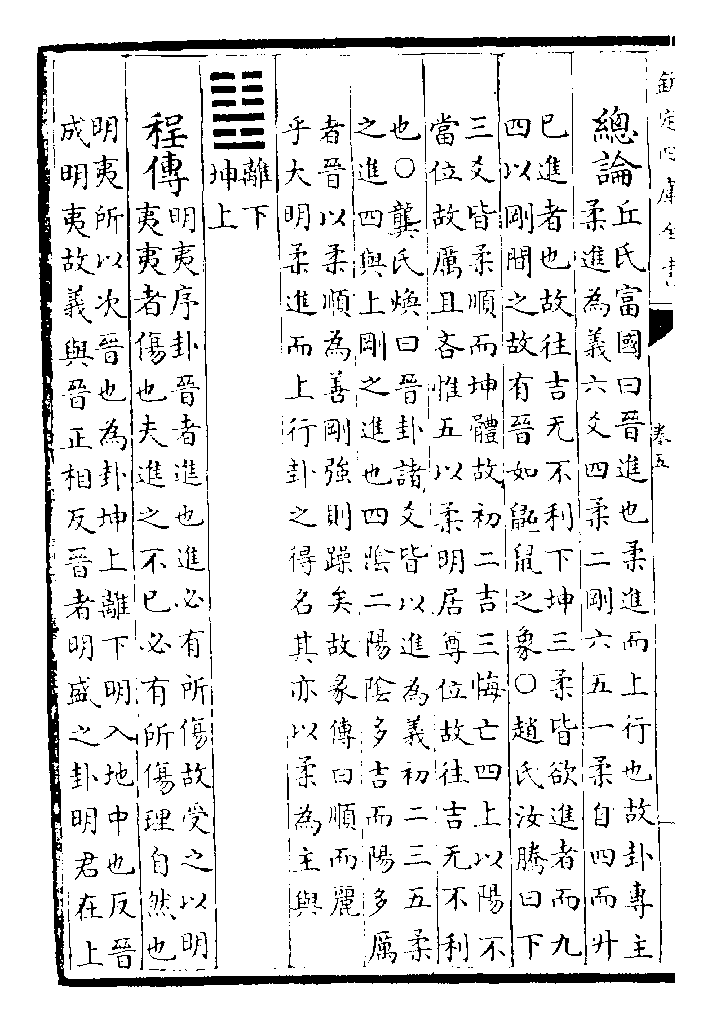 欽定四庫全書
卷五
總論
丘氏富國曰晉進也柔進而上行也故卦專主
柔進為義六爻四柔二剛六五一柔自四而升
已進者也故往吉无不利下坤三柔皆欲進者而九
四以剛間之故有晉如鼫鼠之象○趙氏汝騰曰下
三爻皆柔順而坤體故初二吉三悔亡四上以陽不
當位故厲且吝惟五以柔明居尊位故往吉无不利
也○龔氏煥曰晉卦諸爻皆以進為義初二三五柔
之進四與上剛之進也四陰二陽陰多吉而陽多厲
者晉以柔順為善剛強則躁矣故彖傳曰順而麗
乎大明柔進而上行卦之得名其亦以柔為主與
離下
坤上
程傳
明夷序卦晉者進也進必有所傷故受之以明
夷夷者傷也夫進之不已必有所傷理自然也
明夷所以次晉也為卦坤上離下明入地中也反晉
成明夷故義與晉正相反晉者明盛之卦明君在上